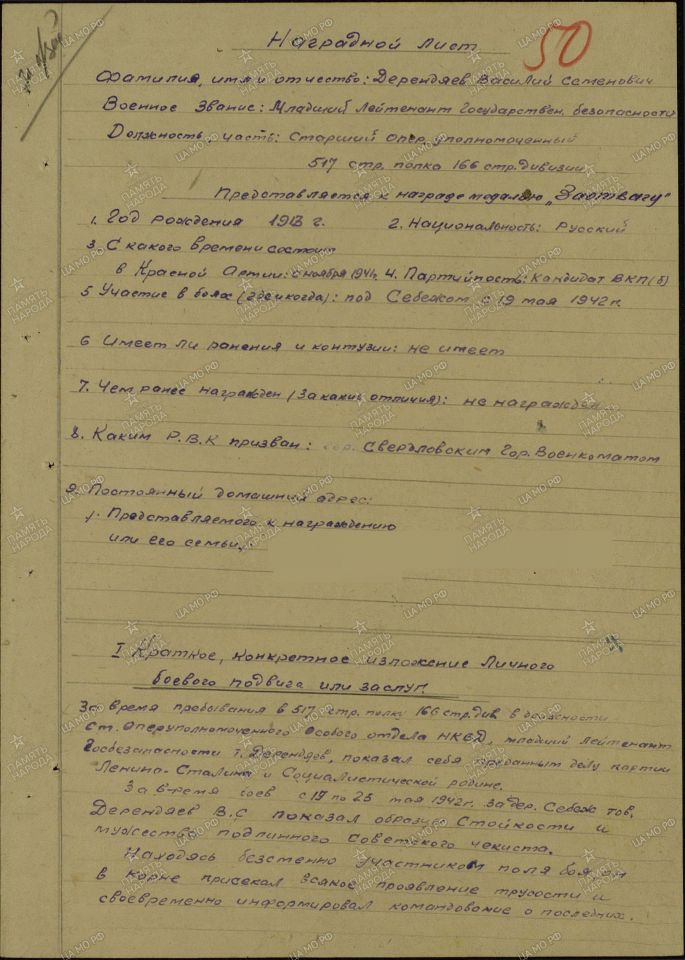 50
Наградной лист
Фамилия, имя и отчество: Дерендяев Василий Семенович
Военное звание: Младший Лейтенант Государствен. безопасности
Должность, часть: Старший опер. уполномоченный
517 стр. полка 166 стр. дивизии
Представляется к награде медалью „За отвагу"
1. Год рождения 1913 г. 2. Национальность: Русский
3. С какого времени состоит
в Красной Армии: с ноября 1941 г. 4. Партийность: Кандидат ВКП(б)
5 Участие в боях (где и когда): под Себежом с 19 мая 1942 г.
6 Имеет ли ранения и контузии: не имеет
7. Чем ранее награжден (за какие отличия): не награжден
8. Каким Р.В.К призван: Свердловским Гор. Военкоматом
9. Постоянный домашний адрес:
Представляемого к награждению
или его семьи,
I Краткое, конкретное изложение Личного
боевого подвига или заслуг.
За время пребывания в 517 стр. полку 166 стр. див. в должности
ст. оперуполномоченного Особого отдела НКВД, младший Лейтенант
Госбезопасности т. Дерендяев, показал себя преданным делу партии
Ленина-Сталина и Социалистической родине.
За время боев с 19 по 25 мая 1942 г. за дер. Себеж тов.
Дерендяев В.С показал образцы Стойкости и
мужества подлинного советского чекиста.
Находясь безсменно участником поля боя, он
в корне присекал всякое проявление трусости и
своевременно информировал командование о последних.
ПАМЯТЬ НАРОДА
ЦАМО.РФ